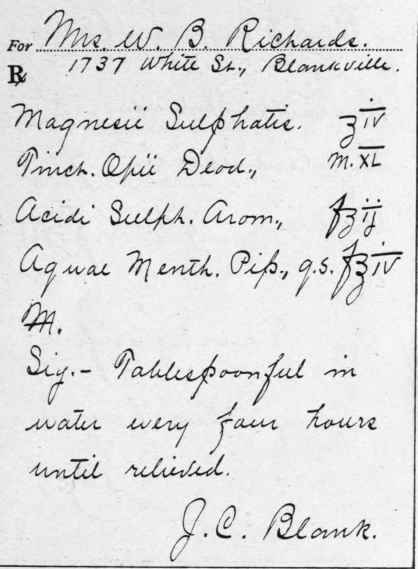 For Mrs. W. B. Richards.
℞ 1737 White St., Blankville.
Magnesii Sulphatis. ʒiv
Tinct. Opii Deod., m. XL
Acidi Sulph. Arom., fʒij
Aquae Menth. Pip., q.s. f℥iv
M.
Sig.- Tablespoonful in
water every four hours
until relieved.
J. C. Blank.